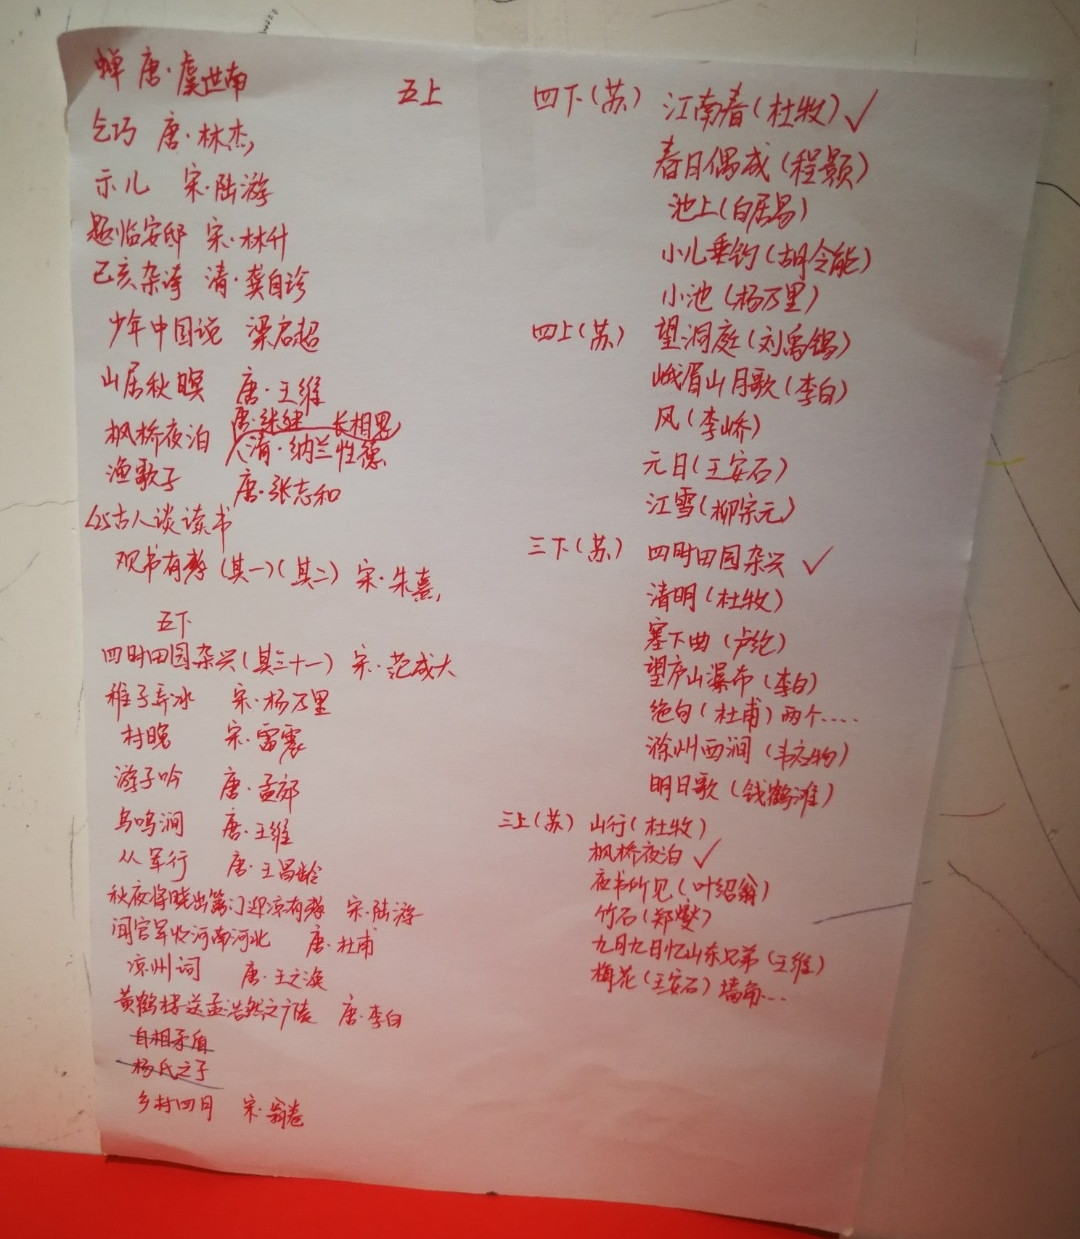 蝉 唐·虞世南
五上
乞巧 唐·林杰,
示儿 宋·陆游
题临安邸 宋·林升
己亥杂诗 清·龚自珍
少年中国说 梁启超
山居秋暝 唐·王维
枫桥夜泊 唐·张继 长相思
清·纳兰性德
渔歌子 唐·张志和
25古人谈读书
观书有感(其一)(其二) 宋·朱熹,
五下
四时田园杂兴(其三十一) 宋·范成大
稚子弄冰 宋·杨万里
村晚 宋·雷震
游子吟 唐·孟郊
鸟鸣涧 唐·王维
从军行 唐·王昌龄
秋夜将晓出篱门迎凉有感 宋·陆游
闻官军收河南河北 唐·杜甫
凉州词 唐·王之涣
黄鹤楼送孟浩然之广陵 唐·李白
自相矛盾
杨氏之子
乡村四月 宋·翁卷
四下(苏) 江南春(杜牧)✓
春日偶成(程颢)
池上(白居易)
小儿垂钓(胡令能)
小池(杨万里)
四上(苏) 望洞庭(刘禹锡)
峨眉山月歌(李白)
风(李峤)
元日(王安石)
江雪(柳宗元)
三下(苏) 四时田园杂兴 ✓
清明(杜牧)
塞下曲(卢纶)
望庐山瀑布(李白)
绝句(杜甫)两个····
滁州西涧(韦应物)
明日歌(钱鹤滩)
三上(苏) 山行(杜牧)
枫桥夜泊 ✓
夜书所见(叶绍翁)
竹石(郑燮)
九月九日忆山东兄弟(王维)
梅花(王安石)墙角···